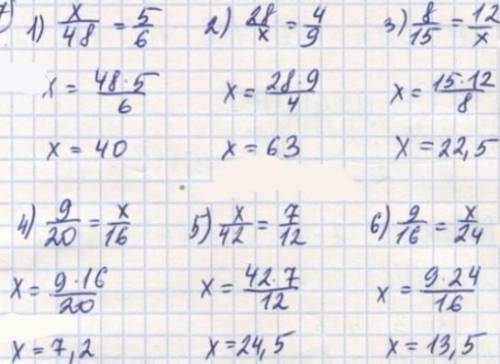 1) x/48 = 5/6
x = 48·5/6
x = 40
2) 28/x = 4/9
x = 28·9/4
x = 63
3) 8/15 = 12/x
x = 15·12/8
x = 22,5
4) 9/20 = x/16
x = 9·16/20
x = 7,2
5) x/42 = 7/12
x = 42·7/12
x = 24,5
6) 9/16 = x/24
x = 9·24/16
x = 13,5